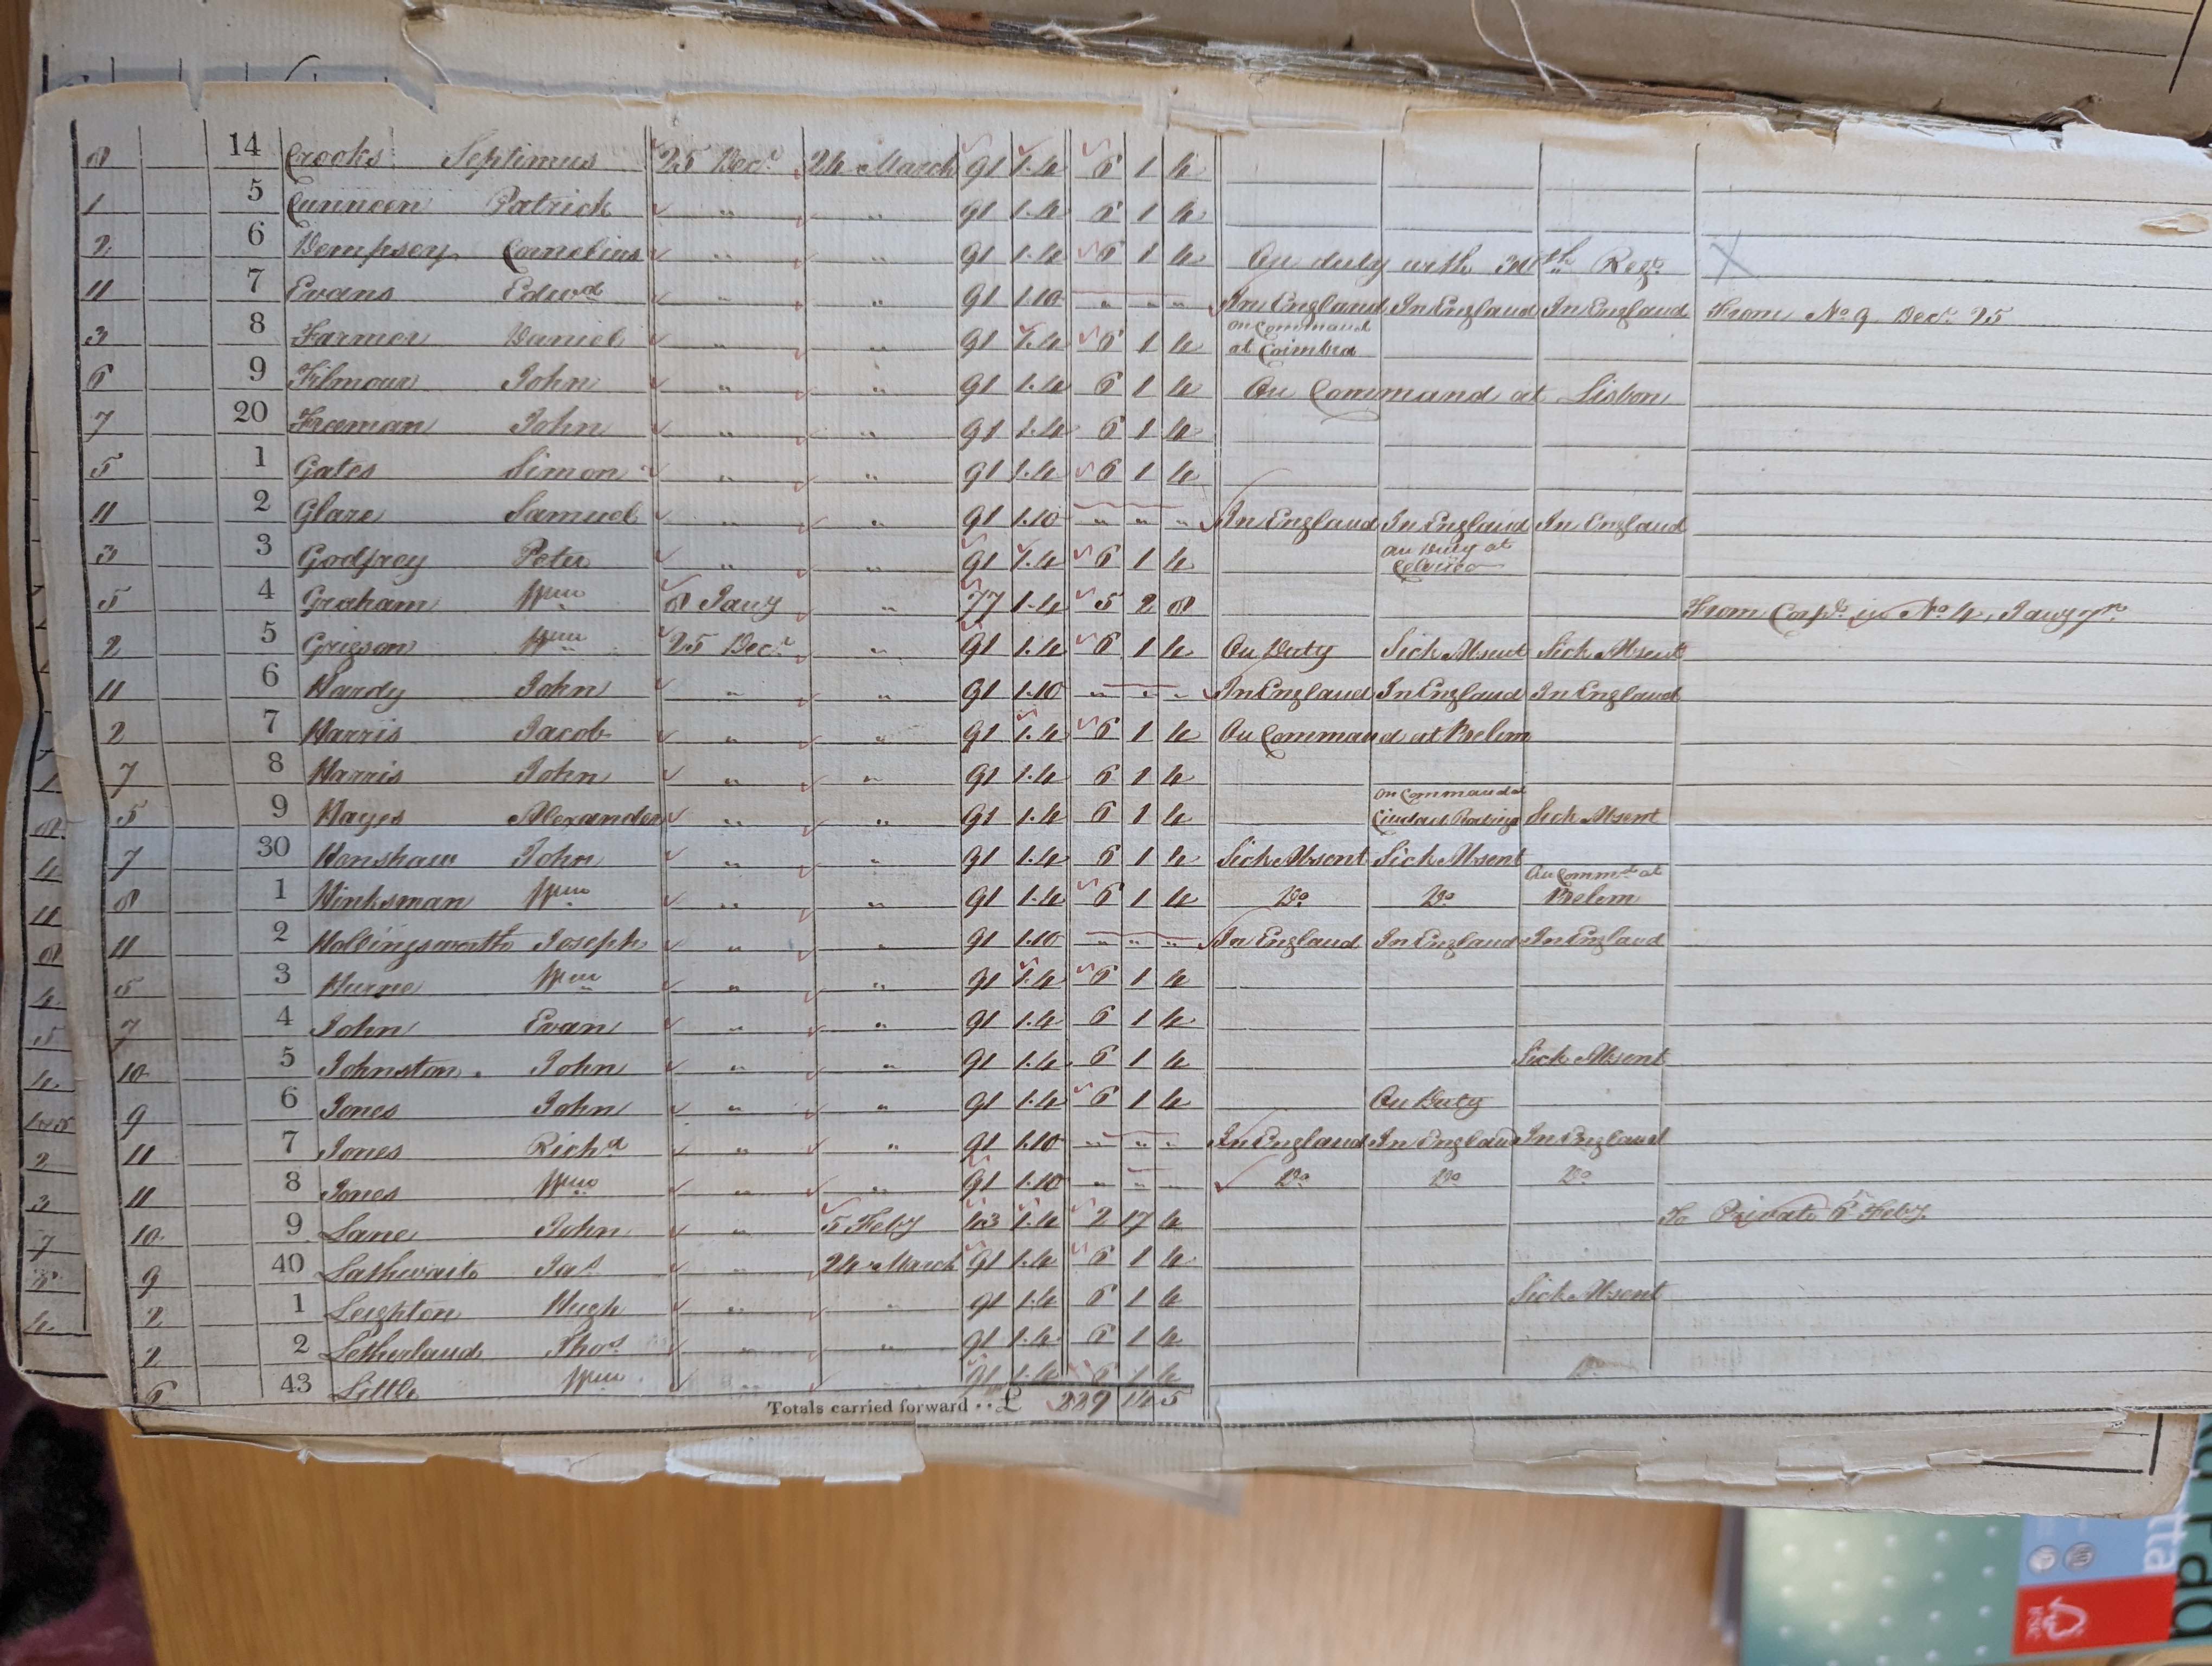 8 14 Crooks Septimus 25 Decr 24 March 91 1.4 6 1 4
1 5 Cunneen Patrick " " 91 1.4 6 1 4
2 6 Dempsey Cornelius " " 91 1.4 6 1 4 On duty with Regt X
11 7 Evans Edwd " " 91 1.10 " " " In England In England In England From No 9 Decr 25
3 8 Farmer Daniel " " 91 1.4 6 1 4 On Command at Coimbra
6 9 Filmour John " " 91 1.4 6 1 4 On Command at Lisbon
7 20 Freeman John " " 91 1.4 6 1 4
5 1 Gates Simon " " 91 1.4 6 1 4
11 2 Glaze Samuel " " 91 1.10 " " " In England In England In England
3 3 Godfrey Peter " " 91 1.4 6 1 4 On Duty at
5 4 Graham Wm 8 Jany " 77 1.4 5 2 8 From Corpl in No 4, Jany 7th
2 5 Grigson Wm 25 Decr " 91 1.4 6 1 4 On Duty Sick Absent Sick Absent
11 6 Hardy John " " 91 1.10 " " " In England In England In England
2 7 Harris Jacob " " 91 1.4 6 1 4 On Command at Belem
7 8 Harris John " " 91 1.4 6 1 4
5 9 Hayes Alexander " " 91 1.4 6 1 4 On Command at Ciudad Rodrigo Sick Absent
7 30 Henshaw John " " 91 1.4 6 1 4 Sick Absent Sick Absent
8 1 Hinksman Wm " " 91 1.4 6 1 4 Do Do On Commd at Belem
11 2 Hollingsworth Joseph " " 91 1.10 " " " In England In England In England
5 3 Hurne Wm " " 91 1.4 6 1 4
7 4 John Evan " " 91 1.4 6 1 4
10 5 Johnston John " " 91 1.4 6 1 4 Sick Absent
9 6 Jones John " " 91 1.4 6 1 4 On Duty
11 7 Jones Richd " " 91 1.10 " " " In England In England In England
11 8 Jones Wm " " 91 1.10 " " " Do Do Do
10 9 Lane John " 5 Feby 43 1.4 2 17 4 To Private 6th Feby
9 40 Lathwaite Jas " 24 March 91 1.4 6 1 4
2 1 Leighton Hugh " " 91 1.4 6 1 4 Sick Absent
2 2 Letherland Thos " " 91 1.4 6 1 4
6 43 Little Wm " " 91 1.4 6 1 4 Do
Totals carried forward .. £ 14 5